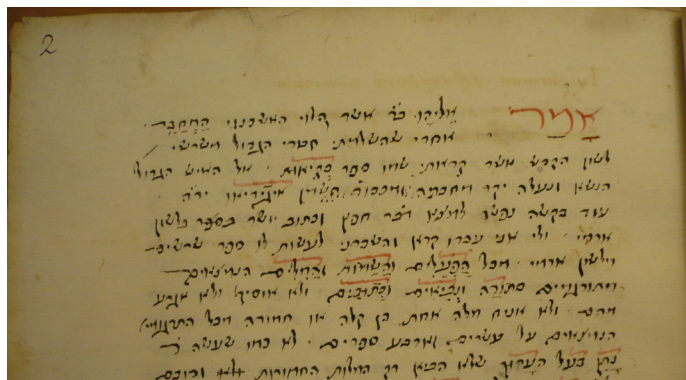 2
אָמַר אֵלִיָּהוּ כּ״ר אשר הלוי האשכנזי הַמְחַבֵּר .
אחרי שהשלמתי חבורי הגדול משרשי
לשון הקדש אשר קראתי שמו ספר זכרונות . אל האיש הגדול
הנשא ונעלה יקר מחכמה ומכבוד
עוד בקשה נפשו למצא דברי חפץ וכתוב יושר בספר בלשון
ארמי . ולי אני עבדו קרא והשביעני לעשות לו ספר שרשים
בלשון ארמי . מכל הַפְּעָלִים וְהַשֵּׁמוֹת וְהַמִּלִּים הנמצאים
בתרגומים מתוֹרָה וּנְבִיאִים וּכְתוּבִים . ולא אוסיף ולא אגרע
מהם . ולא אניח מלה אחת הן קלה או חמורה מכל התרגום
הנמצאים על עשרים וארבע ספרים . לא כמו שעשה ר׳
נָתָן בַּעַל הֶעָרוּךְ שלא הביא רק המלות החמורות ולא